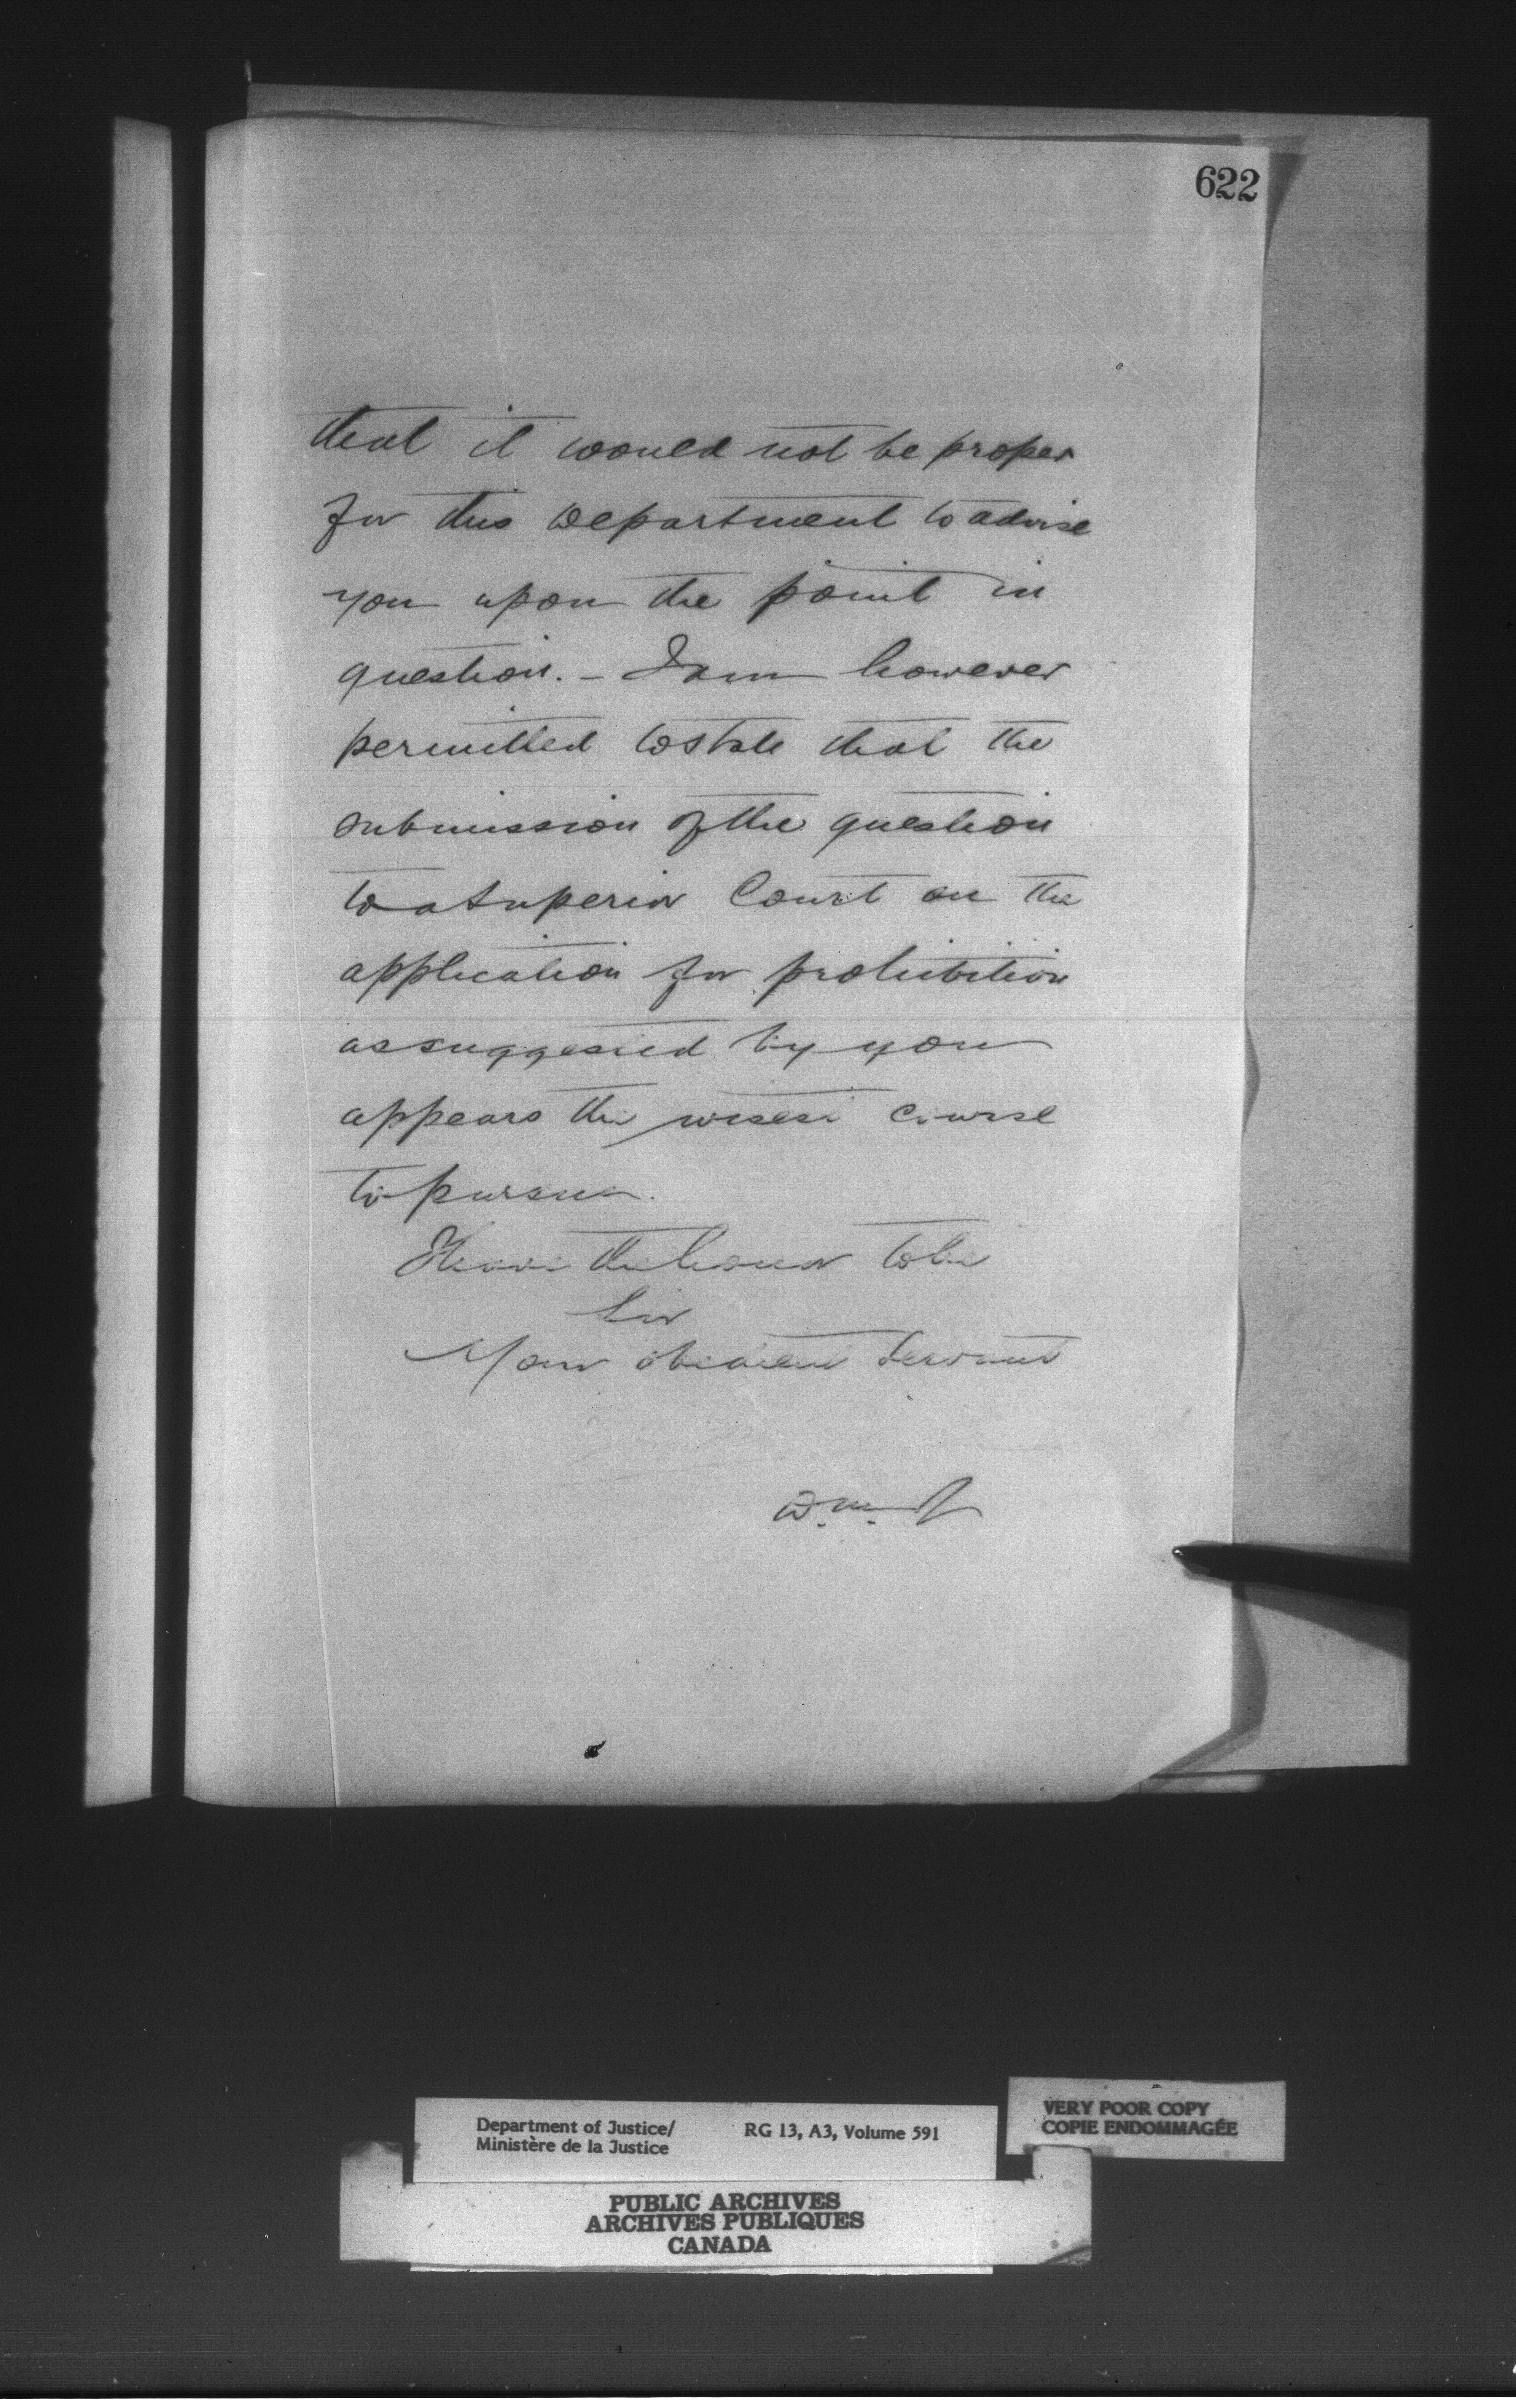 622
that it would not be proper
for this Department to advise
you upon the point in
question. - I am however
permitted to state that the
submission of the question
to a Superior Court on the
application for prohibition
as suggested by you
appears the wisest course
to pursue.
I have the honor to be
Sir
Your obedient Servant
D.M.J
Department of Justice/
Ministère de la Justice
RG 13, A3, Volume 591
VERY POOR COPY
COPIE ENDOMMAGÉE
PUBLIC ARCHIVES
ARCHIVES PUBLIQUES
CANADA